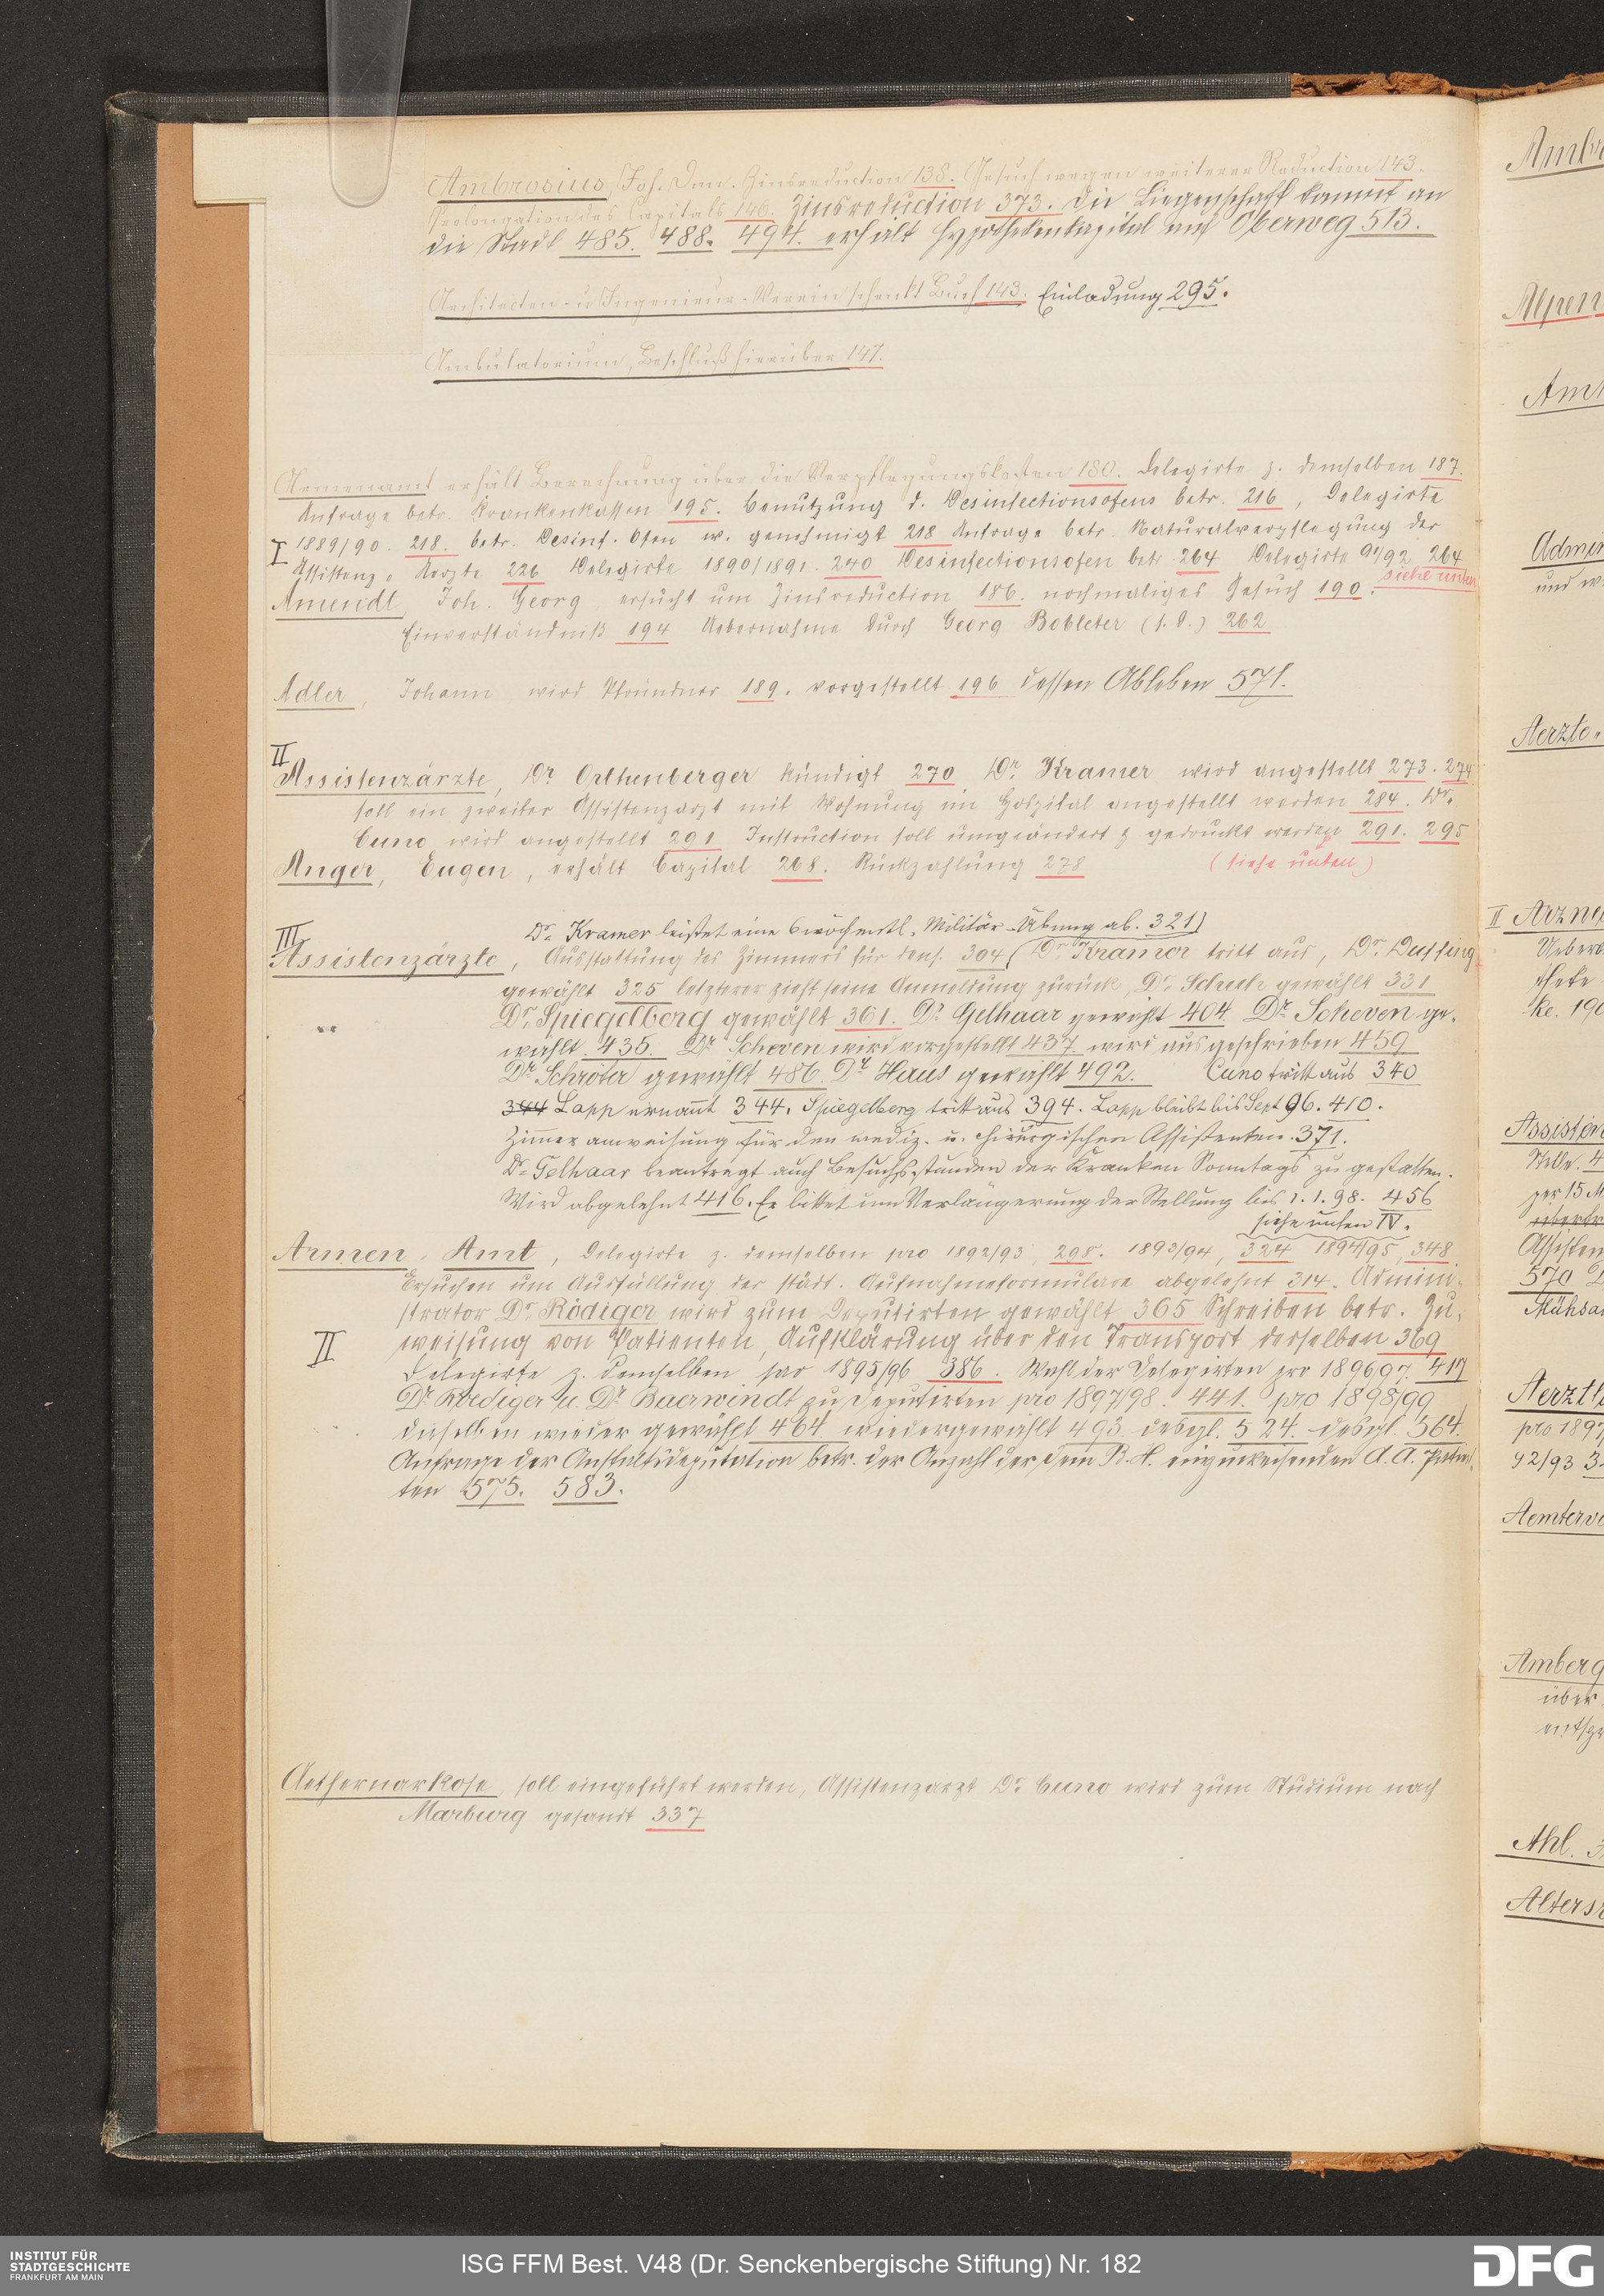 Ambrosius, Joh. Dan. Zinsreduction 138. Gesuch wegen weiterer Reduction 143.
Prolongation des Capitals 146. Zinsreduction 373. die Liegenschaft kommt an
die Stadt 485. 488. 494. erhält Hypothekenkapital auf Oberweg 513.
Architecten- u Ingenieur-Verein schenkt Buch 143. Einladung 295.
Ambulatorium, Beschluß hierüber 147.
Armenamt erhält Berechnung über die Verpflegungskosten 180. Delegirte z. demselben 187.
Anfrage betr. Krankenkassen 195. Benutzung d. Desinfectionsofens betr. 216, Delegirte
I 1889/90. 218. betr. Desinf. Ofen w. genehmigt 218 Anfrage betr. Naturalverpflegung der
Assistenz-Aerzte 226 Delegirte 1890/1891. 240 Desinfectionsofen betr. 264 Delegirte 91/92 264
siehe unten
Amendt Joh. Georg ersucht um Zinsreduction 186. nochmaliges Gesuch 190.
Einverständniß 194 Uebernahme durch Georg Bobleter (s. d.) 262
Adler, Johann wird Pfründner 189. vorgestellt 196 dessen Ableben 571.
II
Assistenzärzte, Dr Orthenberger kündigt 270 Dr. Kramer wird angestellt 273. 274
soll ein zweiter Assistenzarzt mit Wohnung im Hospital angestellt werden 284. Dr.
Cuno wird angestellt 291 Instruction soll umgeändert & gedruckt werden 291. 295
Anger, Eugen, erhält Capital 268. Rückzahlung 278 (siehe unten)
Dr. Kramer leistet eine 6wöchentl. Militär-Übung ab. 321)
III
Assistenzärzte, Ausstattung des Zimmers für dens. 304 (Dr. Kramer tritt aus, Dr. Dussing
gewählt 325 letzterer zieht seine Anmeldung zurück, Dr. Schech gewählt 331
Dr. Spiegelberg gewählt 361. Dr. Gelhaar gewählt 404. Dr. Scheven ge-
wählt. 435. Dr Scheven wird vorgestellt 437. wird ausgeschrieben 459
Dr. Schröter gewählt 486. Dr Haus gewählt 492. Cuno tritt aus 340
344 Lapp ernannt 344. Spiegelberg tritt aus 394. Lapp bleibt bis Sept 96. 410.
Zimmeranweisung für den mediz. u. chirurgischen Assistenten. 371.
Dr. Gelhaar beantragt auch Besuchsstunden der Kranken Sonntags zu gestatten.
Wird abgelehnt 416. Er bittet um Verlängerung der Stellung bis 1.1.98. 456
siehe unten IV.
Armen-Amt, Delegirte z. demselben pro 1892/93, 298. 1893/94, 324 1894/95, 348.
Ersuchen um Ausfüllung der städt. Aufnahmeformulare abgelehnt 314. Admini-
strator Dr. Rödiger wird zum Deputirten gewählt 365 Schreiben betr. Zu-
II weisung von Patienten, Aufklärung über den Transport derselben 369
Delegirte z. demselben pro 1895/96 386. Wahl der Delegirten pro 1896/97. 417
Dr. Roediger u. Dr. Baerwindt zu Deputirten pro 1897/98. 441. pro 1898/99
dieselben wieder gewählt 464. wiedergewählt 493 desgl. 524. desgl. 564.
Anfrage der Anstaltsdeputation betr. der Anzahl der dem B. H. einzuweisenden A. A. Patien-
ten 575. 583.
Aethernarkose, soll eingeführt werden, Assistenzarzt Dr. Cuno wird zum Studium nach
Marburg gesandt 337
Alpen
Aerzte-
II Arznei
Ueber
theke
ke. 190
Assisten
Stelle. 4
per 15 M
Assisten
570
Mühsa
Aerztl
pro 1897
92/93 3
Aemterv
Amberg
über
entspr
Ahl. 3
Alters
INSTITUT FÜR
STADTGESCHICHTE
FRANKFURT AM MAIN
ISG FFM Best. V48 (Dr. Senckenbergische Stiftung) Nr. 182
DFG